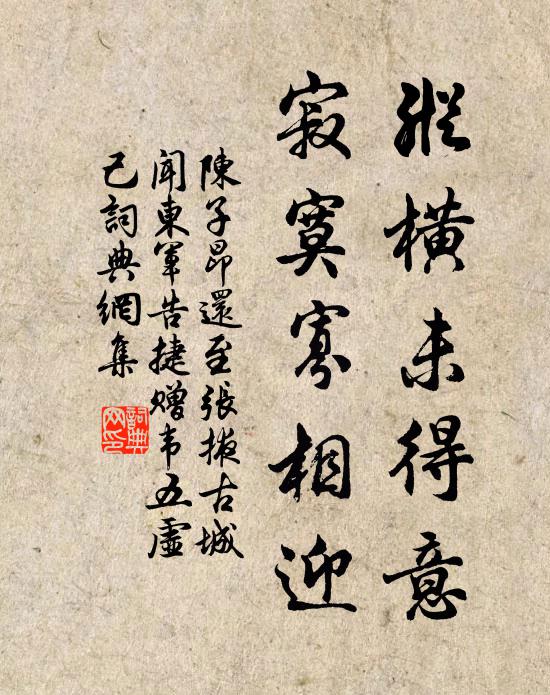 縱橫未得意
寂寞寡相迎
陳子昂還至張掖古城
聞東軍告捷贈韦五虛
己詞典網集
詞典网印